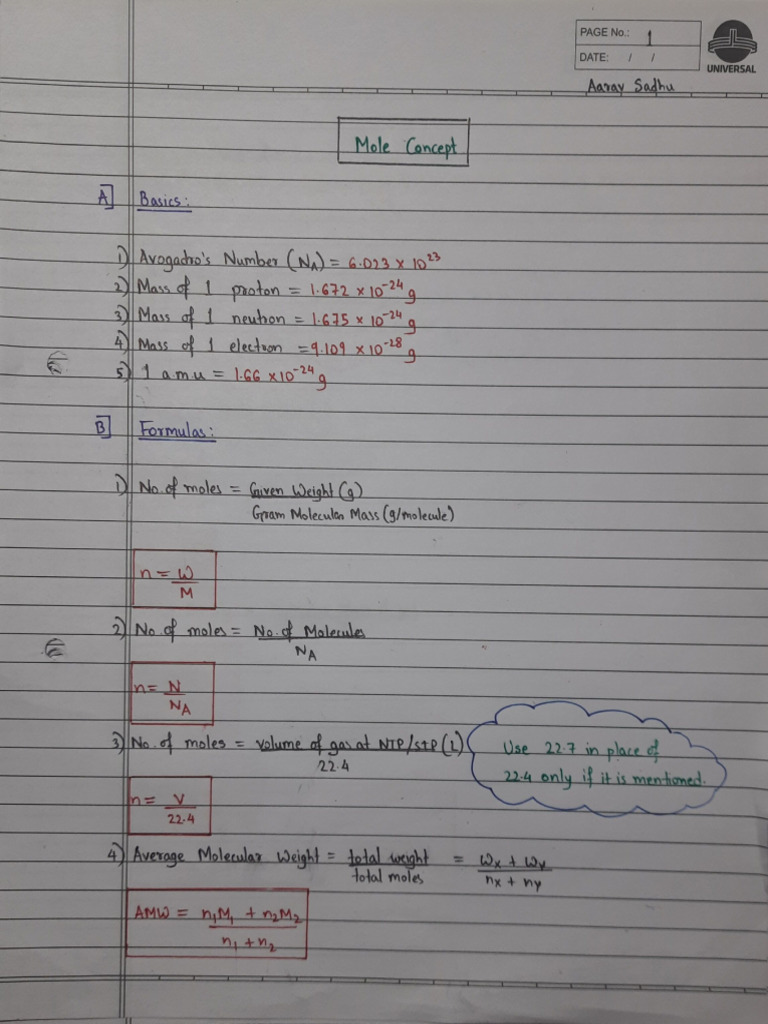 PAGE No.: 1
DATE: / /
UNIVERSAL
Aarav Sadhu
Mole Concept
A] Basics:
1) Avogadro's Number (N_A) = 6.023 × 10²³
2) Mass of 1 proton = 1.672 × 10⁻²⁴ g
3) Mass of 1 neutron = 1.675 × 10⁻²⁴ g
4) Mass of 1 electron = 9.109 × 10⁻²⁸ g
5) 1 a.m.u = 1.66 × 10⁻²⁴ g
B] Formulas:
1) No. of moles = Given Weight (g)
Gram Molecular Mass (g/molecule)
n = W
M
2) No. of moles = No. of Molecules
N_A
n = N
N_A
3) No. of moles = volume of gas at NTP/STP (L)
22.4
Use 22.7 in place of
22.4 only if it is mentioned.
n = V
22.4
4) Average Molecular Weight = total weight = w_x + w_y
total moles n_x + n_y
AMW = n₁M₁ + n₂M₂
n₁ + n₂